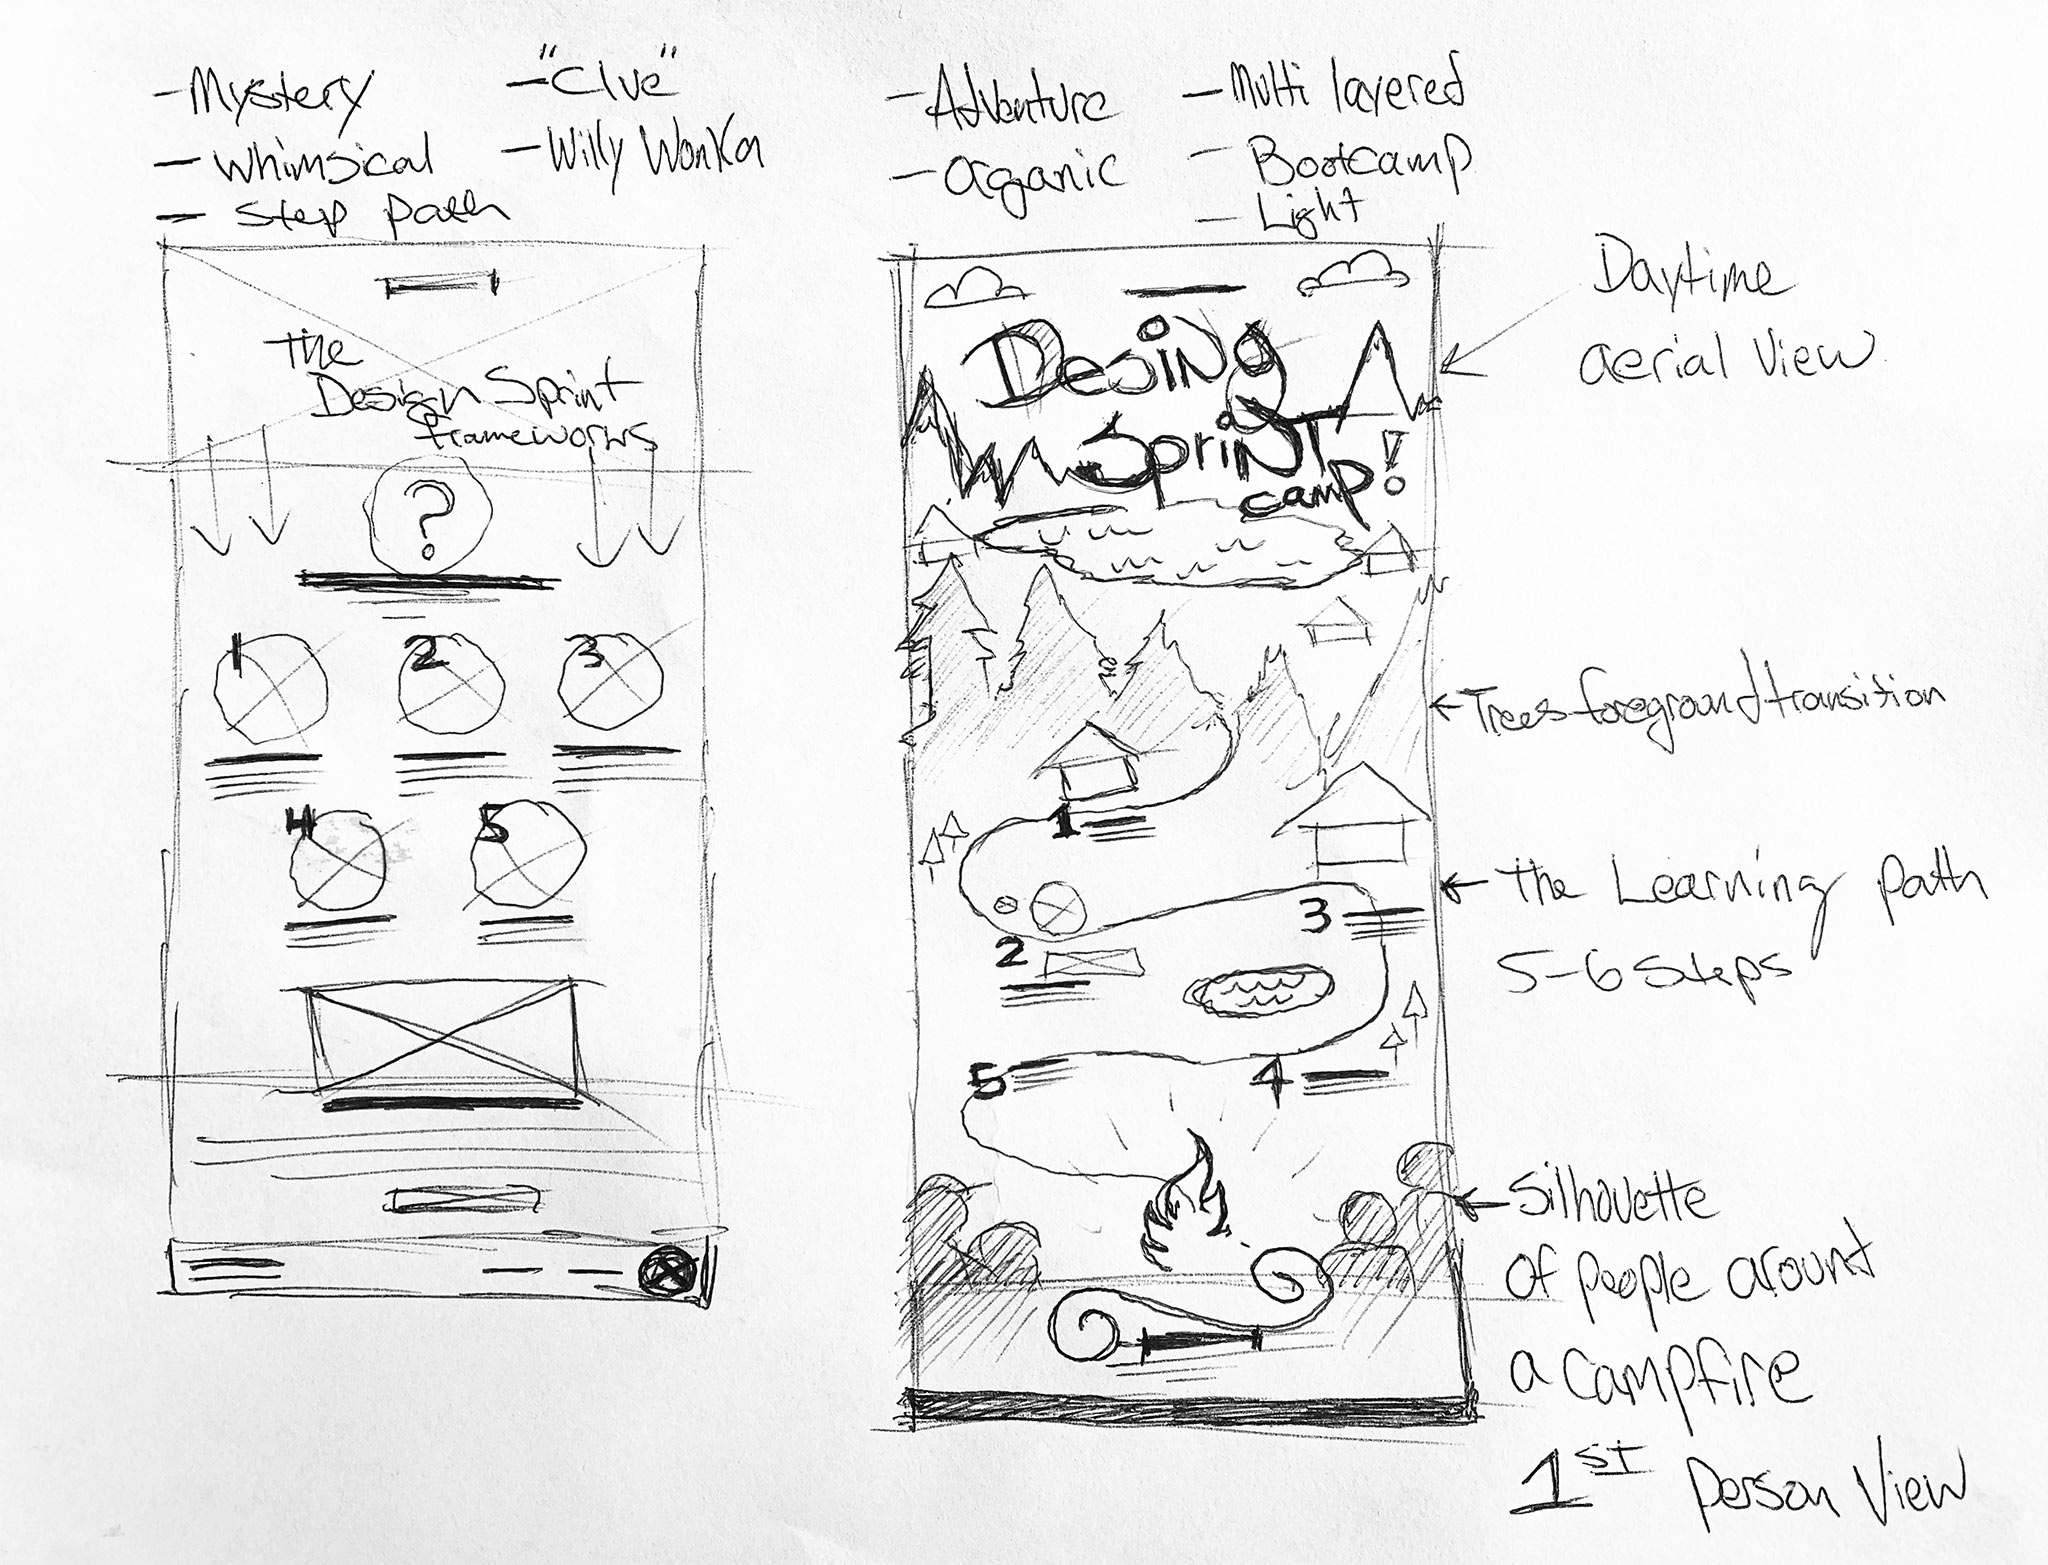 - Mystery
- Whimsical
- Step path
- "Clue"
- Willy Wonka
The
Design Sprint
frameworks
?
1
2
3
4
5
- Adventure
- Oganic
- Multi layered
- Bootcamp
- Light
Desing
Sprint
camp!
1
2
3
4
5
Daytime
aerial view
Trees foreground transition
The Learning path
5-6 steps
Silhouette
of people around
a campfire
1st person view